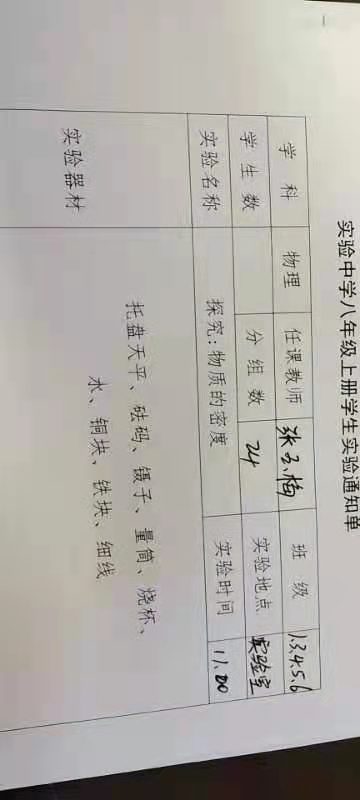 实验中学八年级上册学生实验通知单
学科 物理 任课教师 张玉梅 班级 1.3.4.5.6
学生数 分组数 24 实验地点 实验室
实验名称 探究：物质的密度 实验时间 11.20
实验器材 托盘天平、砝码、镊子、量筒、烧杯、
水、铜块、铁块、细线